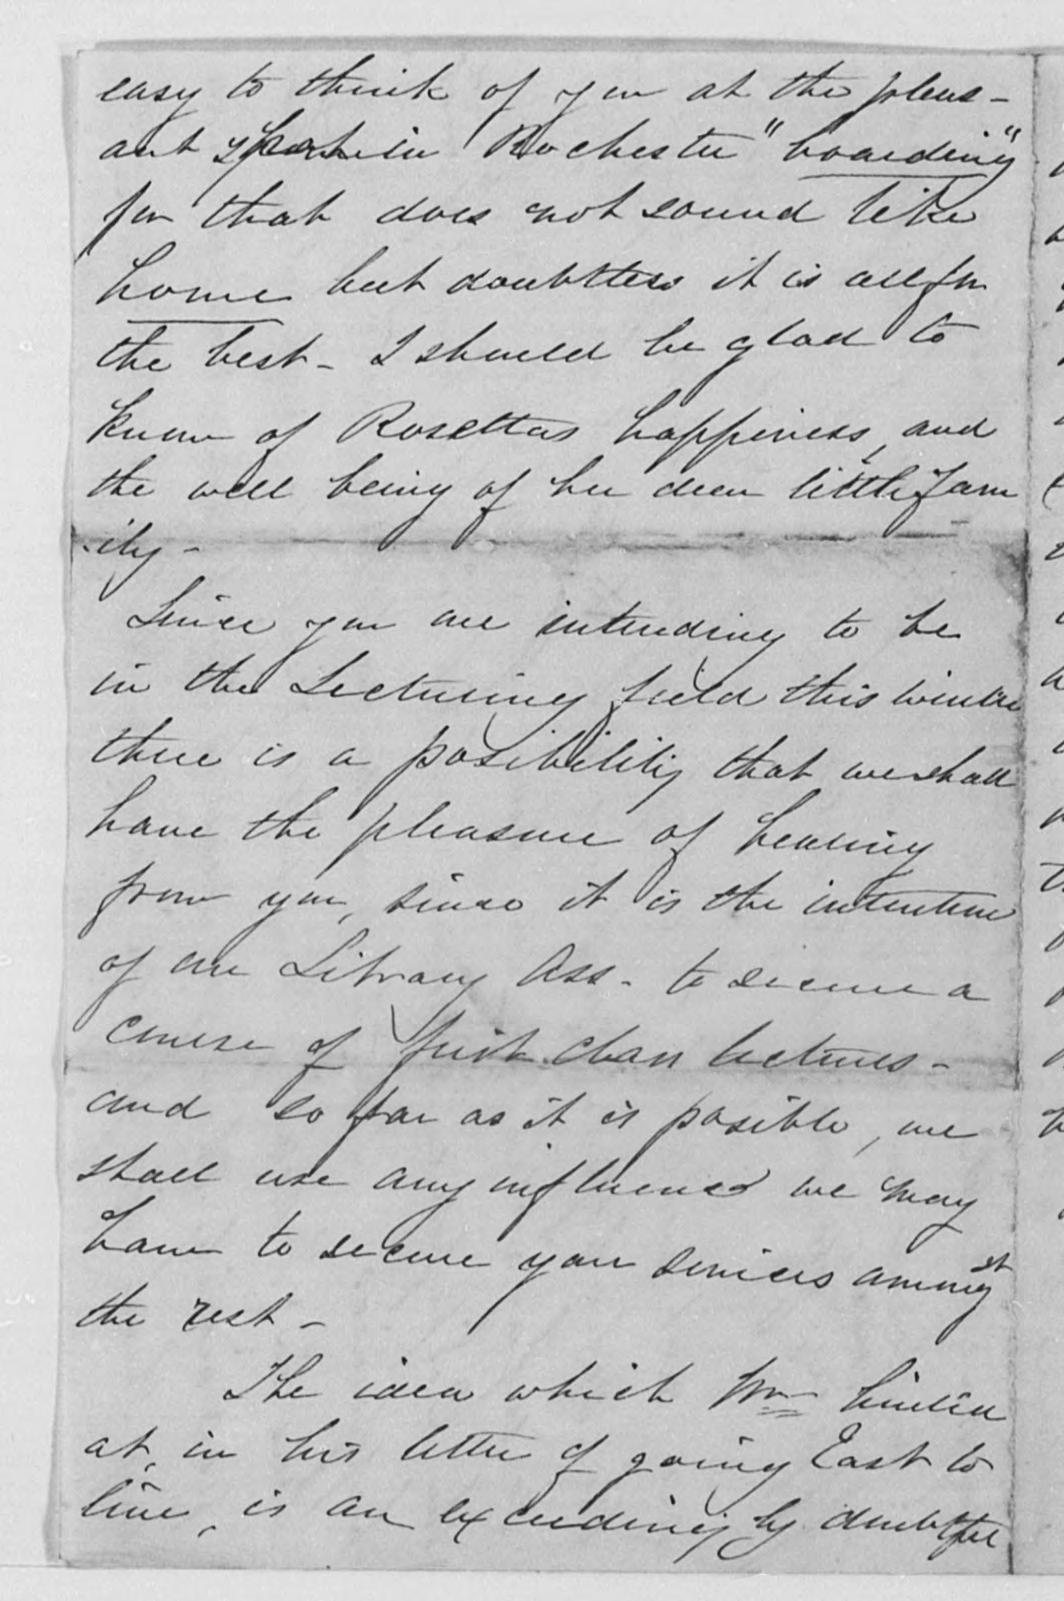 easy to think of you at the pleas-
ant spot in Rochester "boarding"
for that does not sound like
home but doubtless it is all for
the best - I should be glad to
know of Rosettas happiness, and
the well being of her dear little fam
ily -
Since you are intending to be
in the Lecturing field this winter
there is a posibility that we shall
have the pleasure of hearing
from you, since it is the intention
of our Library Ass. to secure a
course of first class lectures -
and so far as it is posible, we
shall use any influence we may
have to secure your services amongst
the rest -
The idea which Wm hinted
at, in his letter of going East to
live, is an exceedingly doubtful